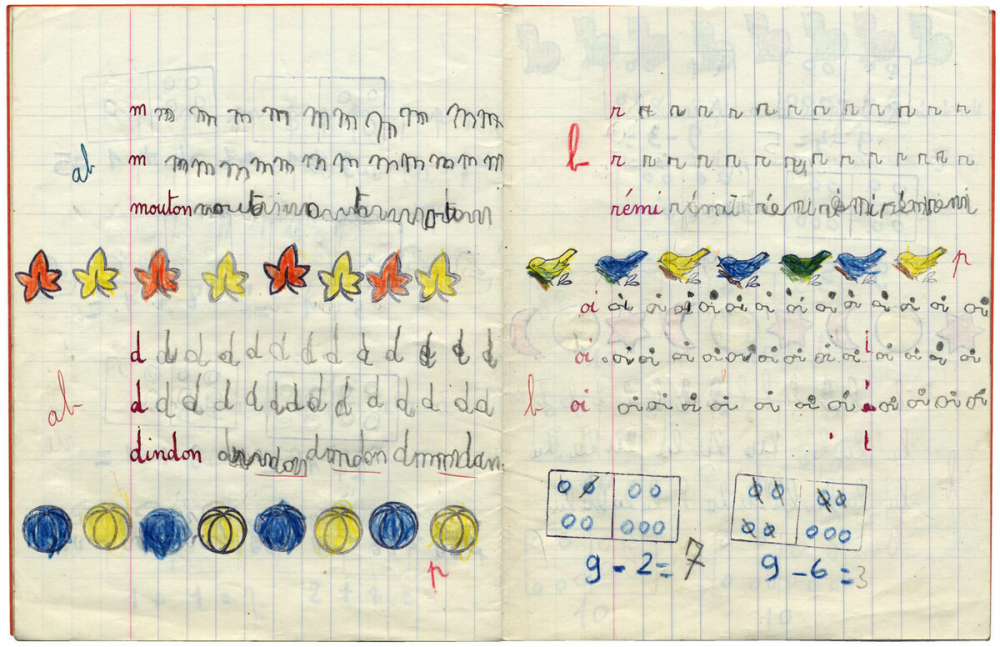 m m m m m m m m m m m
ab
m m m m m m m m m m m m m m
mouton mouton
d d d d d d d d d d d d d
ab
d d d d d d d d d d d d d d
dindon dindon dindon
p
r r r r r r r r r r r r r
b
r r r r r r r r r r r r r
rémi rémi rémi rémi rémi
p
oi oi oi oi oi oi oi oi oi oi oi oi oi oi
oi oi oi oi oi oi oi oi oi oi oi oi oi oi
b oi oi oi oi oi oi oi oi oi oi oi oi
9 - 2 = 7 9 - 6 = 3